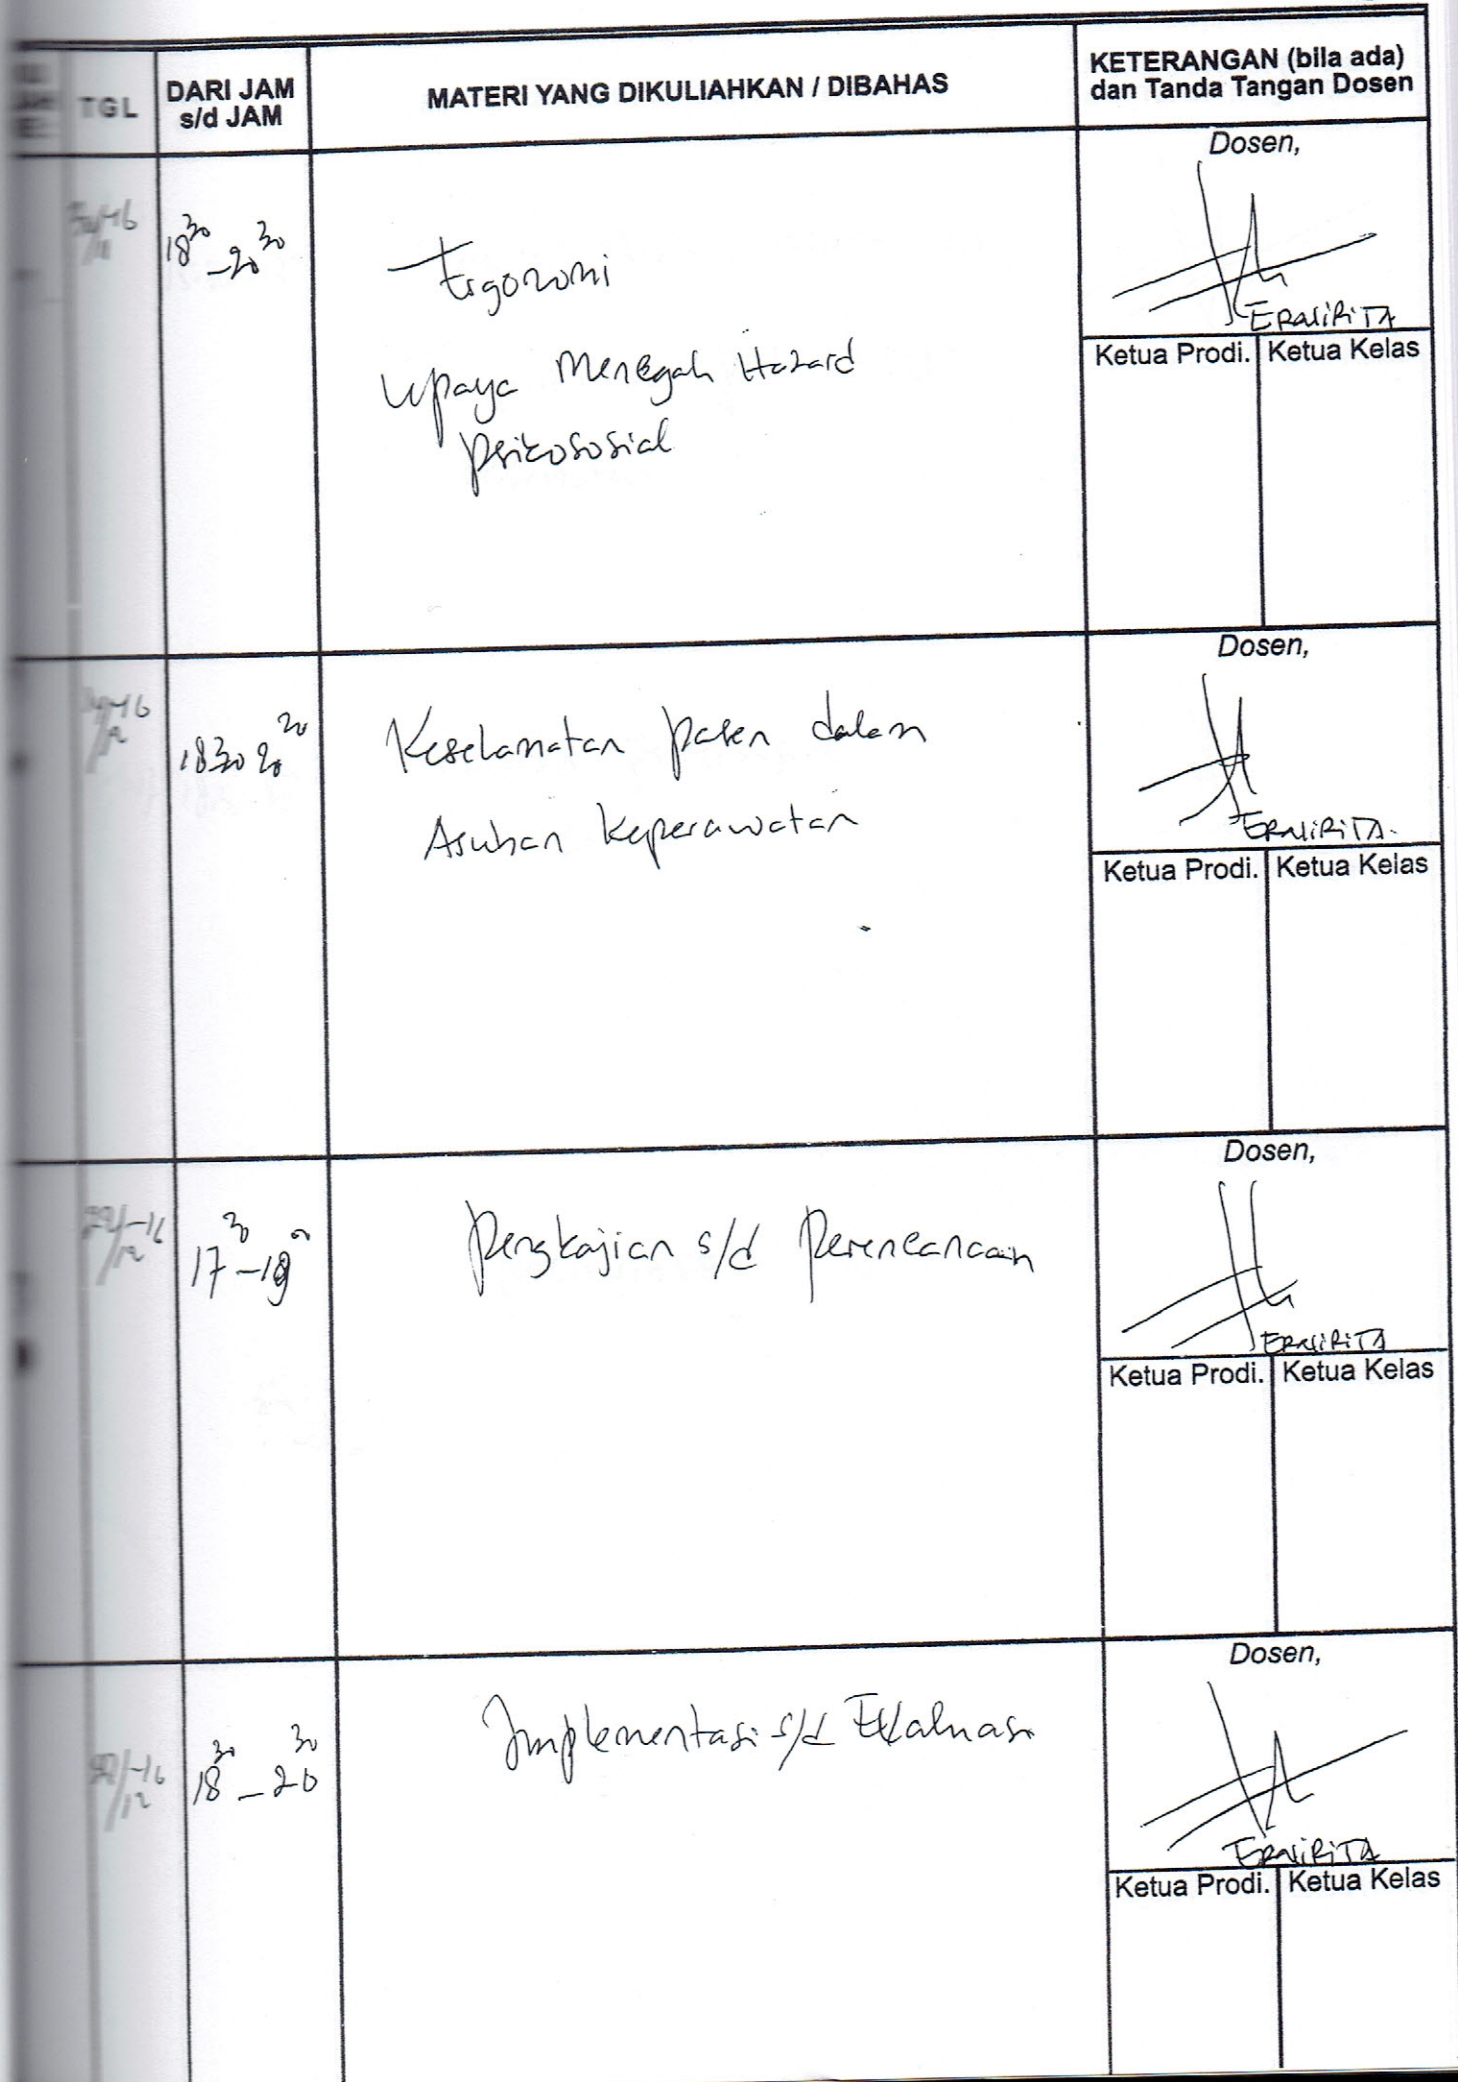 TGL
DARI JAM
s/d JAM
MATERI YANG DIKULIAHKAN / DIBAHAS
KETERANGAN (bila ada)
dan Tanda Tangan Dosen
18³⁰ - 20³⁰
Ergonomi
Upaya Menegah Hazard
psikososial
Dosen,
ERNIRITA
Ketua Prodi. Ketua Kelas
Keselamatan pasen dalam
Asuhan Keperawatan
Dosen,
ERNIRITA.
Ketua Prodi. Ketua Kelas
Pengkajian s/d Perencanaan
Dosen,
ERNIRITA
Ketua Prodi. Ketua Kelas
18³⁰ - 20³⁰
Implementasi s/d Evaluasi
Dosen,
ERNIRITA
Ketua Prodi. Ketua Kelas